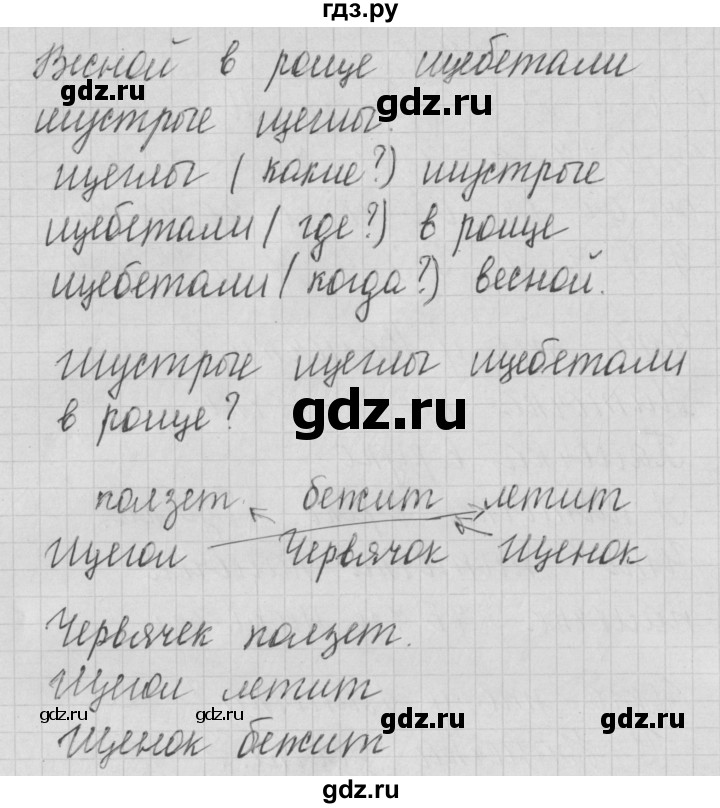 гдз.ру
Весной в роще щебетали
gdz.ru
gdz.ru
шустрые щеглы.
щеглы (какие?) шустрые
щебетали (где?) в роще
щебетали (когда?) весной.
Шустрые щеглы щебетали
в роще?
gdz.ru
ползет бежит летит
Щегол Червячок Щенок
Червячек ползет.
Щегол летит
gdz.ru gdz.ru gdz.ru gdz.ru
Щенок бежит
gdz.ru